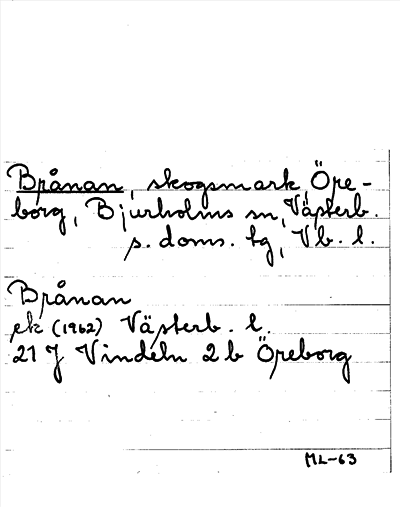 Brånan, skogsmark, Öre-
borg, Bjurholms sn, Västerb.
s. doms. tg, Vb. l.
Brånan
ek (1962) Västerb. l.
21 J Vindeln 2 b Öreborg
ML-63